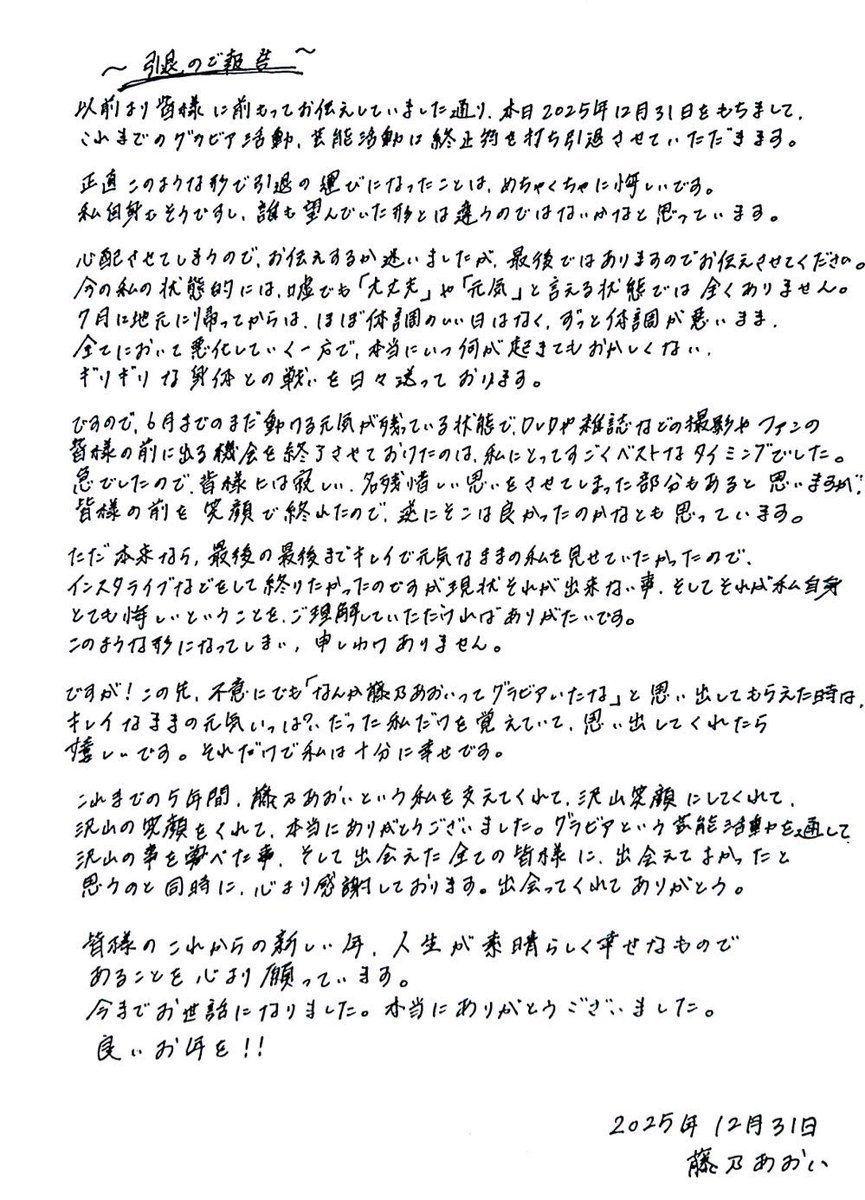 ～引退のご報告～
以前より皆様に前もってお伝えしていました通り、本日2025年12月31日をもちまして、
これまでのグラビア活動、芸能活動に終止符を打ち引退させていただきます。
正直このような形で引退の運びになったことは、めちゃくちゃに悔しいです。
私自身もそうですし、誰も望んでいた形とは違うのではないかなと思っています。
心配させてしまうので、お伝えするか迷いましたが、最後ではありますのでお伝えさせてください。
今の私の状態的には、嘘でも「大丈夫」や「元気」と言える状態では全くありません。
7月に地元に帰ってからは、ほぼ体調のいい日はなく、ずっと体調が悪いまま、
全てにおいて悪化していく一方で、本当にいつ何が起きてもおかしくない、
ギリギリな身体との戦いを日々送っております。
ですので、6月までのまだ動ける元気が残っている状態で、DVDや雑誌などの撮影やファンの
皆様の前に出る機会を終了させておけたのは、私にとってすごくベストなタイミングでした。
急でしたので、皆様には寂しい、名残惜しい思いをさせてしまった部分もあると思いますが、
皆様の前を笑顔で終れたので、逆にそこは良かったのかなとも思っています。
ただ本来なら、最後の最後までキレイで元気なままの私を見せていたかったので、
インスタライブなどをして終りたかったのですが現状それが出来ない事、そしてそれが私自身
とても悔しいということを、ご理解していただければありがたいです。
このような形になってしまい、申しわけありません。
ですが！この先、不意にでも「なんか藤乃あおいってグラビアいたな」と思い出してもらえた時は、
キレイなままの元気いっぱいだった私だけを覚えていて、思い出してくれたら
嬉しいです。それだけで私は十分に幸せです。
これまでの5年間、藤乃あおいという私を支えてくれて、沢山笑顔にしてくれて、
沢山の笑顔をくれて、本当にありがとうございました。グラビアという芸能活動を通して
沢山の事を学べた事、そして出会えた全ての皆様に、出会えてよかったと
思うのと同時に、心より感謝しております。出会ってくれてありがとう。
皆様のこれからの新しい年、人生が素晴らしく幸せなもので
あることを心より願っています。
今までお世話になりました。本当にありがとうございました。
良いお年を！！
2025年12月31日
藤乃あおい